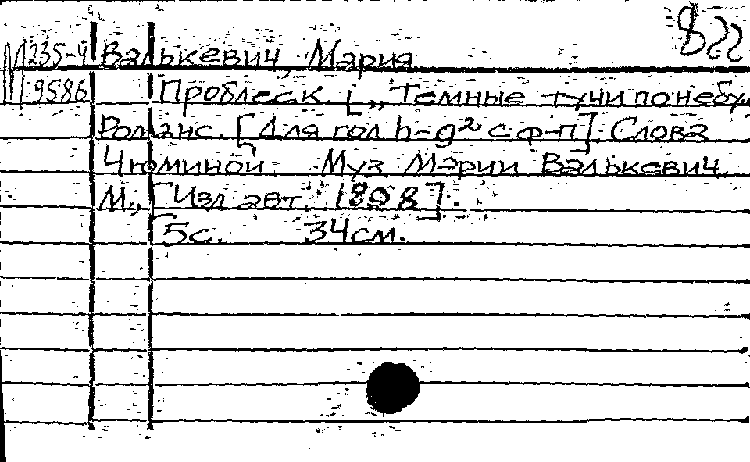 822
М 235-4 Валькевич, Мария
9586 Проблеск. [„Темные тучи по небу
Романс. [Для гол h-g² с ф-п]. Слова
Чюминой. Муз. Марии Валькевич.
М., [Изд. авт. 1898].
5с. 34см.